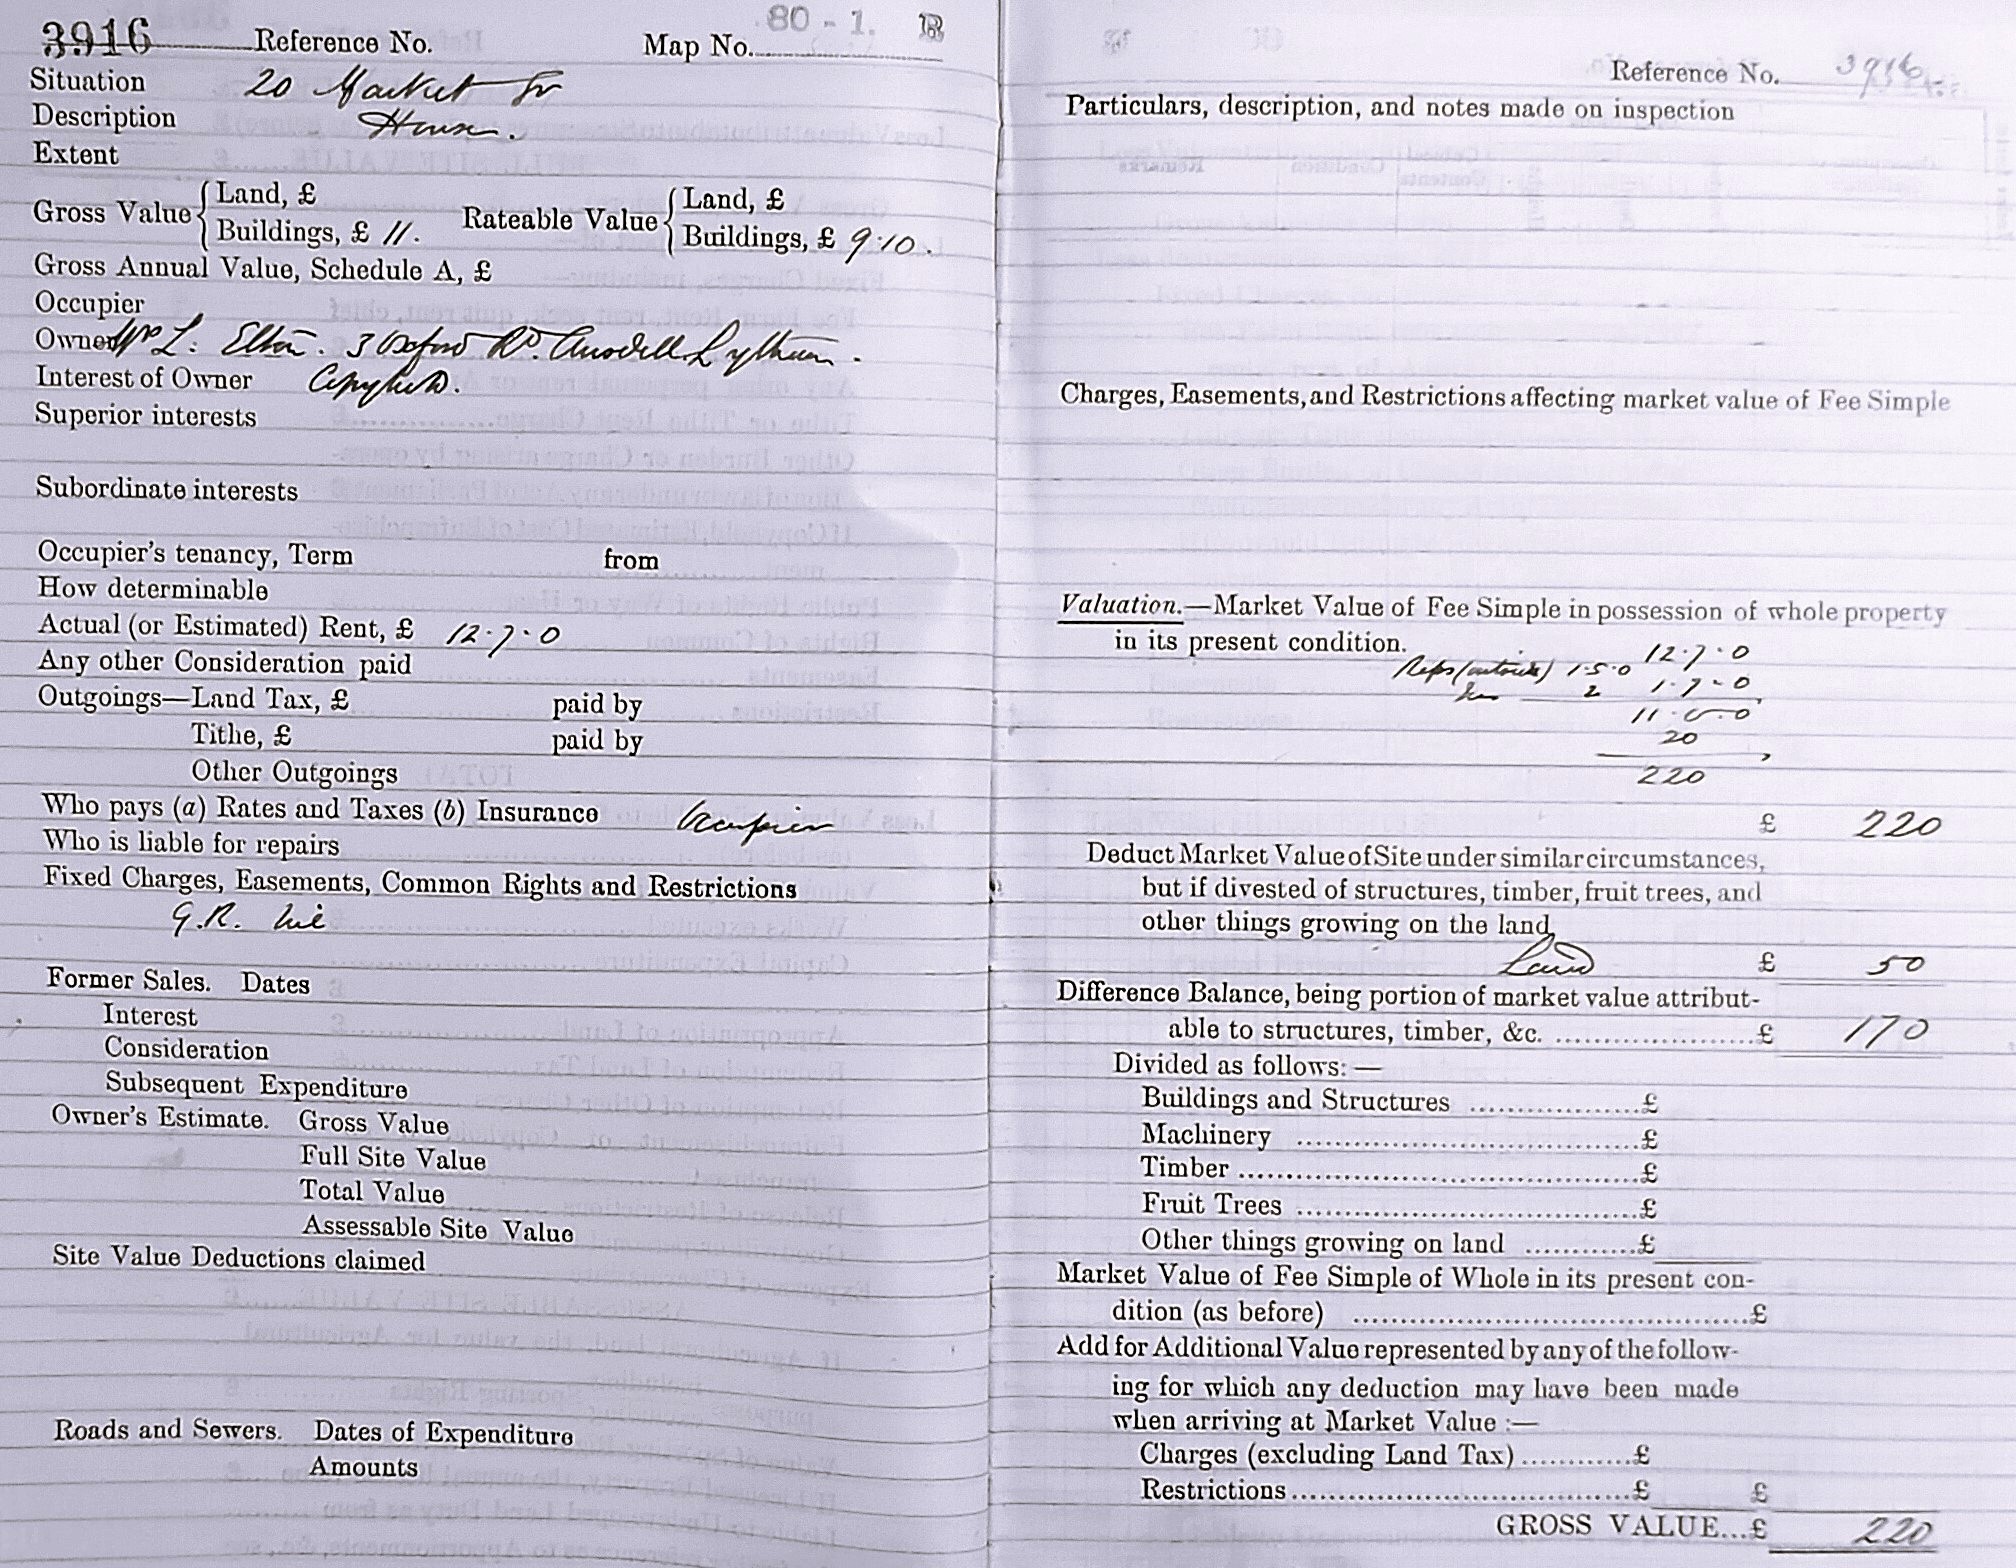 3916 Reference No. Map No. 80 - 1. B
Situation 20 Market St
Description House.
Extent
Gross Value { Land, £
Buildings, £ 11. Rateable Value { Land, £
Buildings, £ 9.10.
Gross Annual Value, Schedule A, £
Occupier
Owner L. Elton. 3 Oxford Rd. Ansdell Lytham.
Interest of Owner Copyhold.
Superior interests
Subordinate interests
Occupier's tenancy, Term from
How determinable
Actual (or Estimated) Rent, £ 12.7.0
Any other Consideration paid
Outgoings—Land Tax, £ paid by
Tithe, £ paid by
Other Outgoings
Who pays (a) Rates and Taxes (b) Insurance Occupier
Who is liable for repairs
Fixed Charges, Easements, Common Rights and Restrictions
G.R. nil
Former Sales. Dates
Interest
Consideration
Subsequent Expenditure
Owner's Estimate. Gross Value
Full Site Value
Total Value
Assessable Site Value
Site Value Deductions claimed
Roads and Sewers. Dates of Expenditure
Amounts
Reference No. 3916
Particulars, description, and notes made on inspection
Charges, Easements, and Restrictions affecting market value of Fee Simple
Valuation.—Market Value of Fee Simple in possession of whole property
in its present condition.
12.7.0
Reps (outside) 1.5.0
Ins 2 1.7.0
11.0.0
20
220
£ 220
Deduct Market Value of Site under similar circumstances,
but if divested of structures, timber, fruit trees, and
other things growing on the land
Land £ 50
Difference Balance, being portion of market value attribut-
able to structures, timber, &c. ...................... £ 170
Divided as follows:—
Buildings and Structures .................. £
Machinery .................................... £
Timber .......................................... £
Fruit Trees .................................... £
Other things growing on land ............ £
Market Value of Fee Simple of Whole in its present con-
dition (as before) .......................................... £
Add for Additional Value represented by any of the follow-
ing for which any deduction may have been made
when arriving at Market Value :—
Charges (excluding Land Tax) ............ £
Restrictions .................................... £ £
GROSS VALUE... £ 220